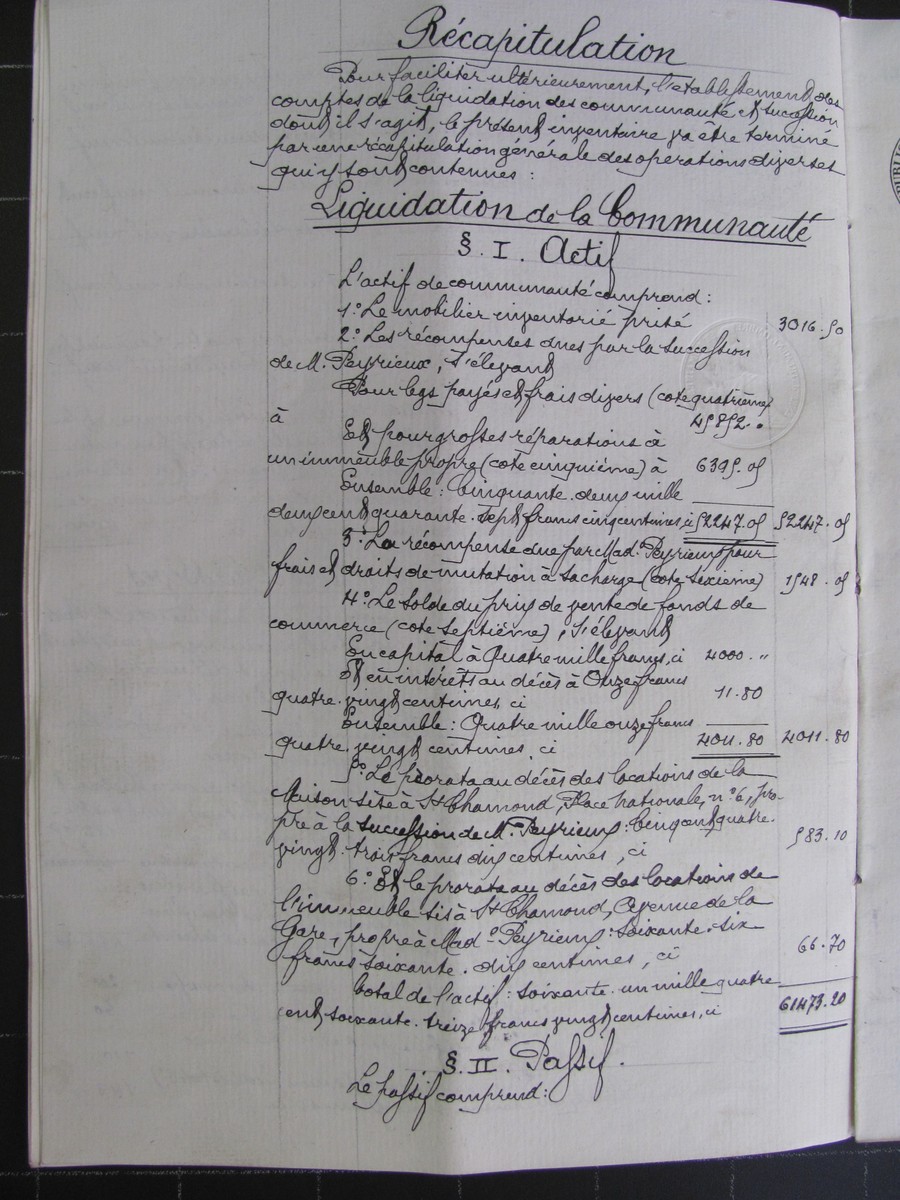 Récapitulation
Pour faciliter ultérieurement, l'établissement des
comptes de la liquidation des communauté et succession
dont il s'agit, le présent inventaire va être terminé
par une récapitulation générale des opérations diverses
qui y sont contenues :
Liquidation de la Communauté
§. I. Actif
L'actif de communauté comprend :
1° Le mobilier inventorié prisé 3016.50
2° Les récompenses dues par la succession
de M. Peyrieux, s'élevant
Pour legs payés et frais divers (cote quatrième)
à 45852. "
Et pour grosses réparations à
un immeuble propre (cote cinquième) à 6395.05
Ensemble : Cinquante-deux mille
deux cent quarante-sept francs cinq centimes, ci 52247.05 52247.05
3° La récompense due par Mad. Peyrieux pour
frais et droits de mutation à sa charge (cote sixième) 1548.05
4° Le solde du prix de vente de fonds de
commerce (cote septième), s'élevant
En capital à Quatre mille francs, ci 4000. "
Et en intérêts au décès à Onze francs
quatre-vingt centimes, ci 11.80
Ensemble : Quatre mille onze francs
quatre-vingt centimes, ci 4011.80 4011.80
5° Le prorata au décès des locations de la
Maison sise à St Chamond, Place nationale, n° 6, pro-
pre à la succession de M. Peyrieux : Cinq cent quatre-
vingt-trois francs dix centimes, ci 583.10
6° Et le prorata au décès des locations de
l'immeuble sis à St Chamond, Avenue de la
Gare, propre à Mad. Peyrieux : soixante-six
francs soixante-dix centimes, ci 66.70
Total de l'actif : soixante-un mille quatre
cent soixante-treize francs vingt centimes, ci 61473.20
§. II. Passif.
Le passif comprend :